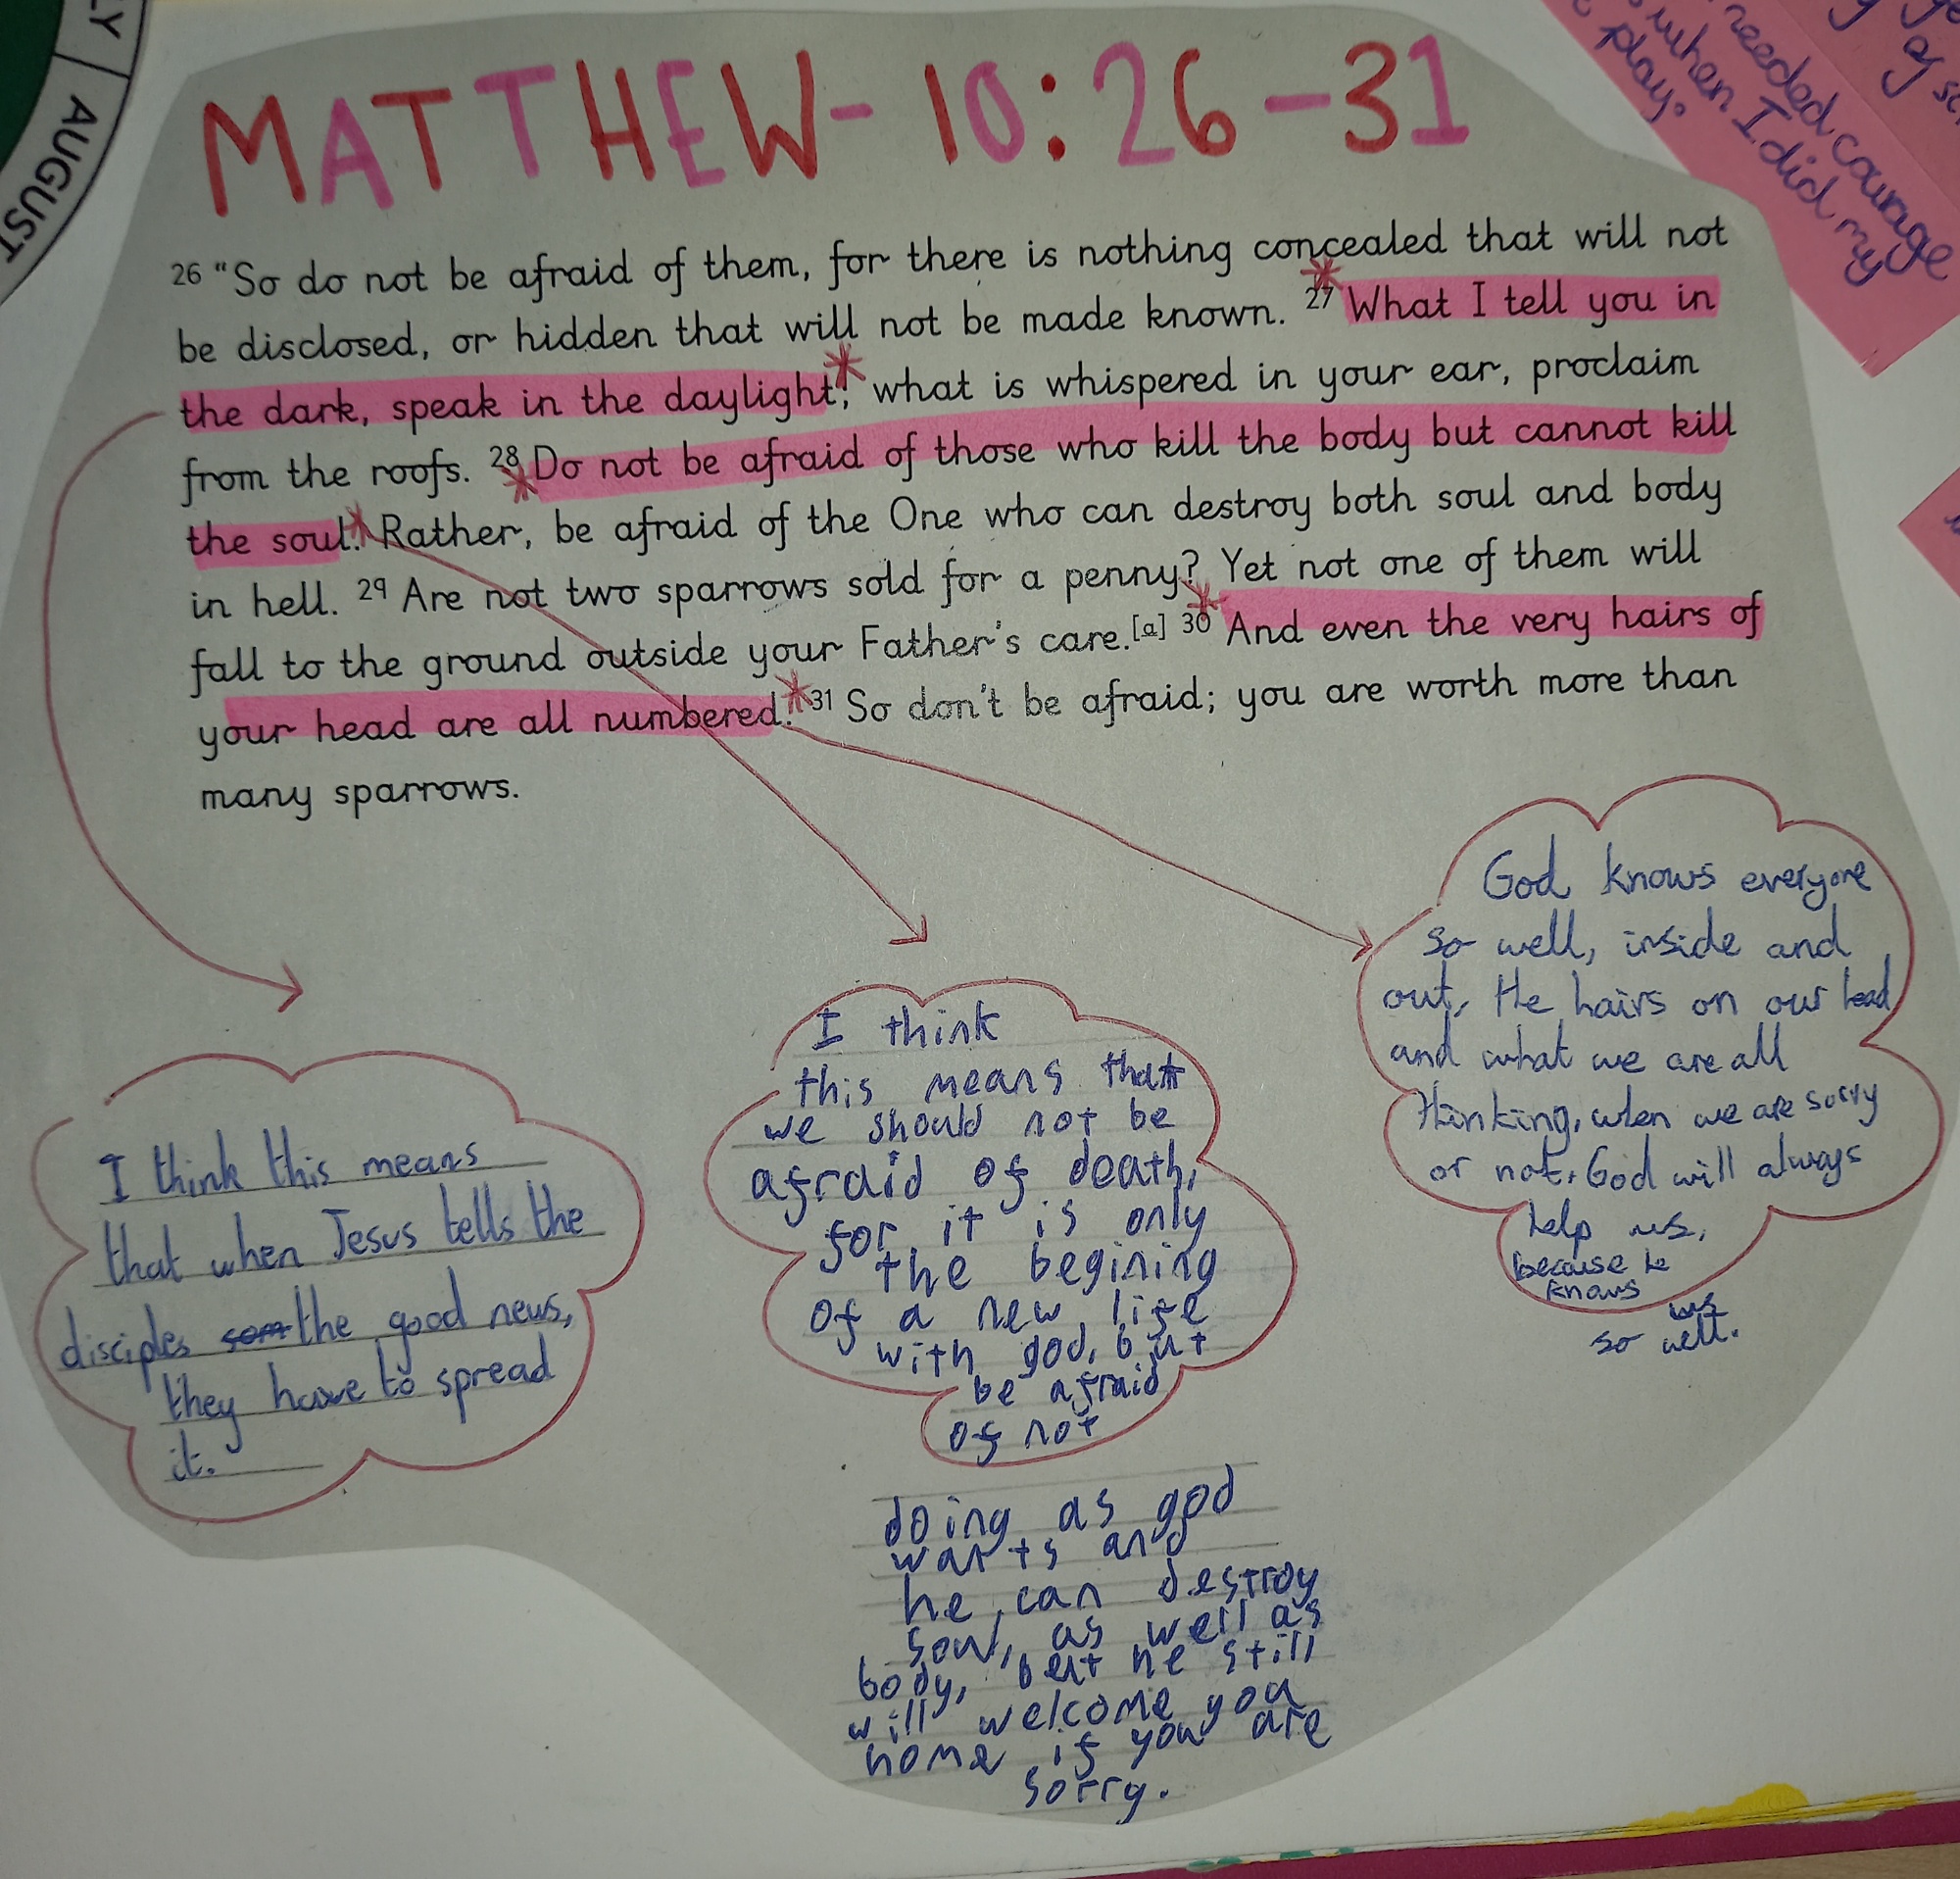 LY
AUGUST
needed courage
when I did my
play.
of
MATTHEW- 10:26-31
26 "So do not be afraid of them, for there is nothing concealed that will not
be disclosed, or hidden that will not be made known. 27 What I tell you in
the dark, speak in the daylight; what is whispered in your ear, proclaim
from the roofs. 28 Do not be afraid of those who kill the body but cannot kill
the soul. Rather, be afraid of the One who can destroy both soul and body
in hell. 29 Are not two sparrows sold for a penny? Yet not one of them will
fall to the ground outside your Father's care.[a] 30 And even the very hairs of
your head are all numbered. 31 So don't be afraid; you are worth more than
many sparrows.
I think this means
that when Jesus tells the
disciples som the good news,
they have to spread
it.
I think
this means that
we should not be
afraid of death,
for it is only
the begining
of a new life
with god, but
be afraid
of not
doing as god
wants and
he can destroy
soul, as well as
body, but he still
will welcome you
home if you are
sorry.
God knows everyone
so well, inside and
out, the hairs on our head
and what we are all
thinking, when we are sorry
or not. God will always
help us,
because he
knows us
so well.